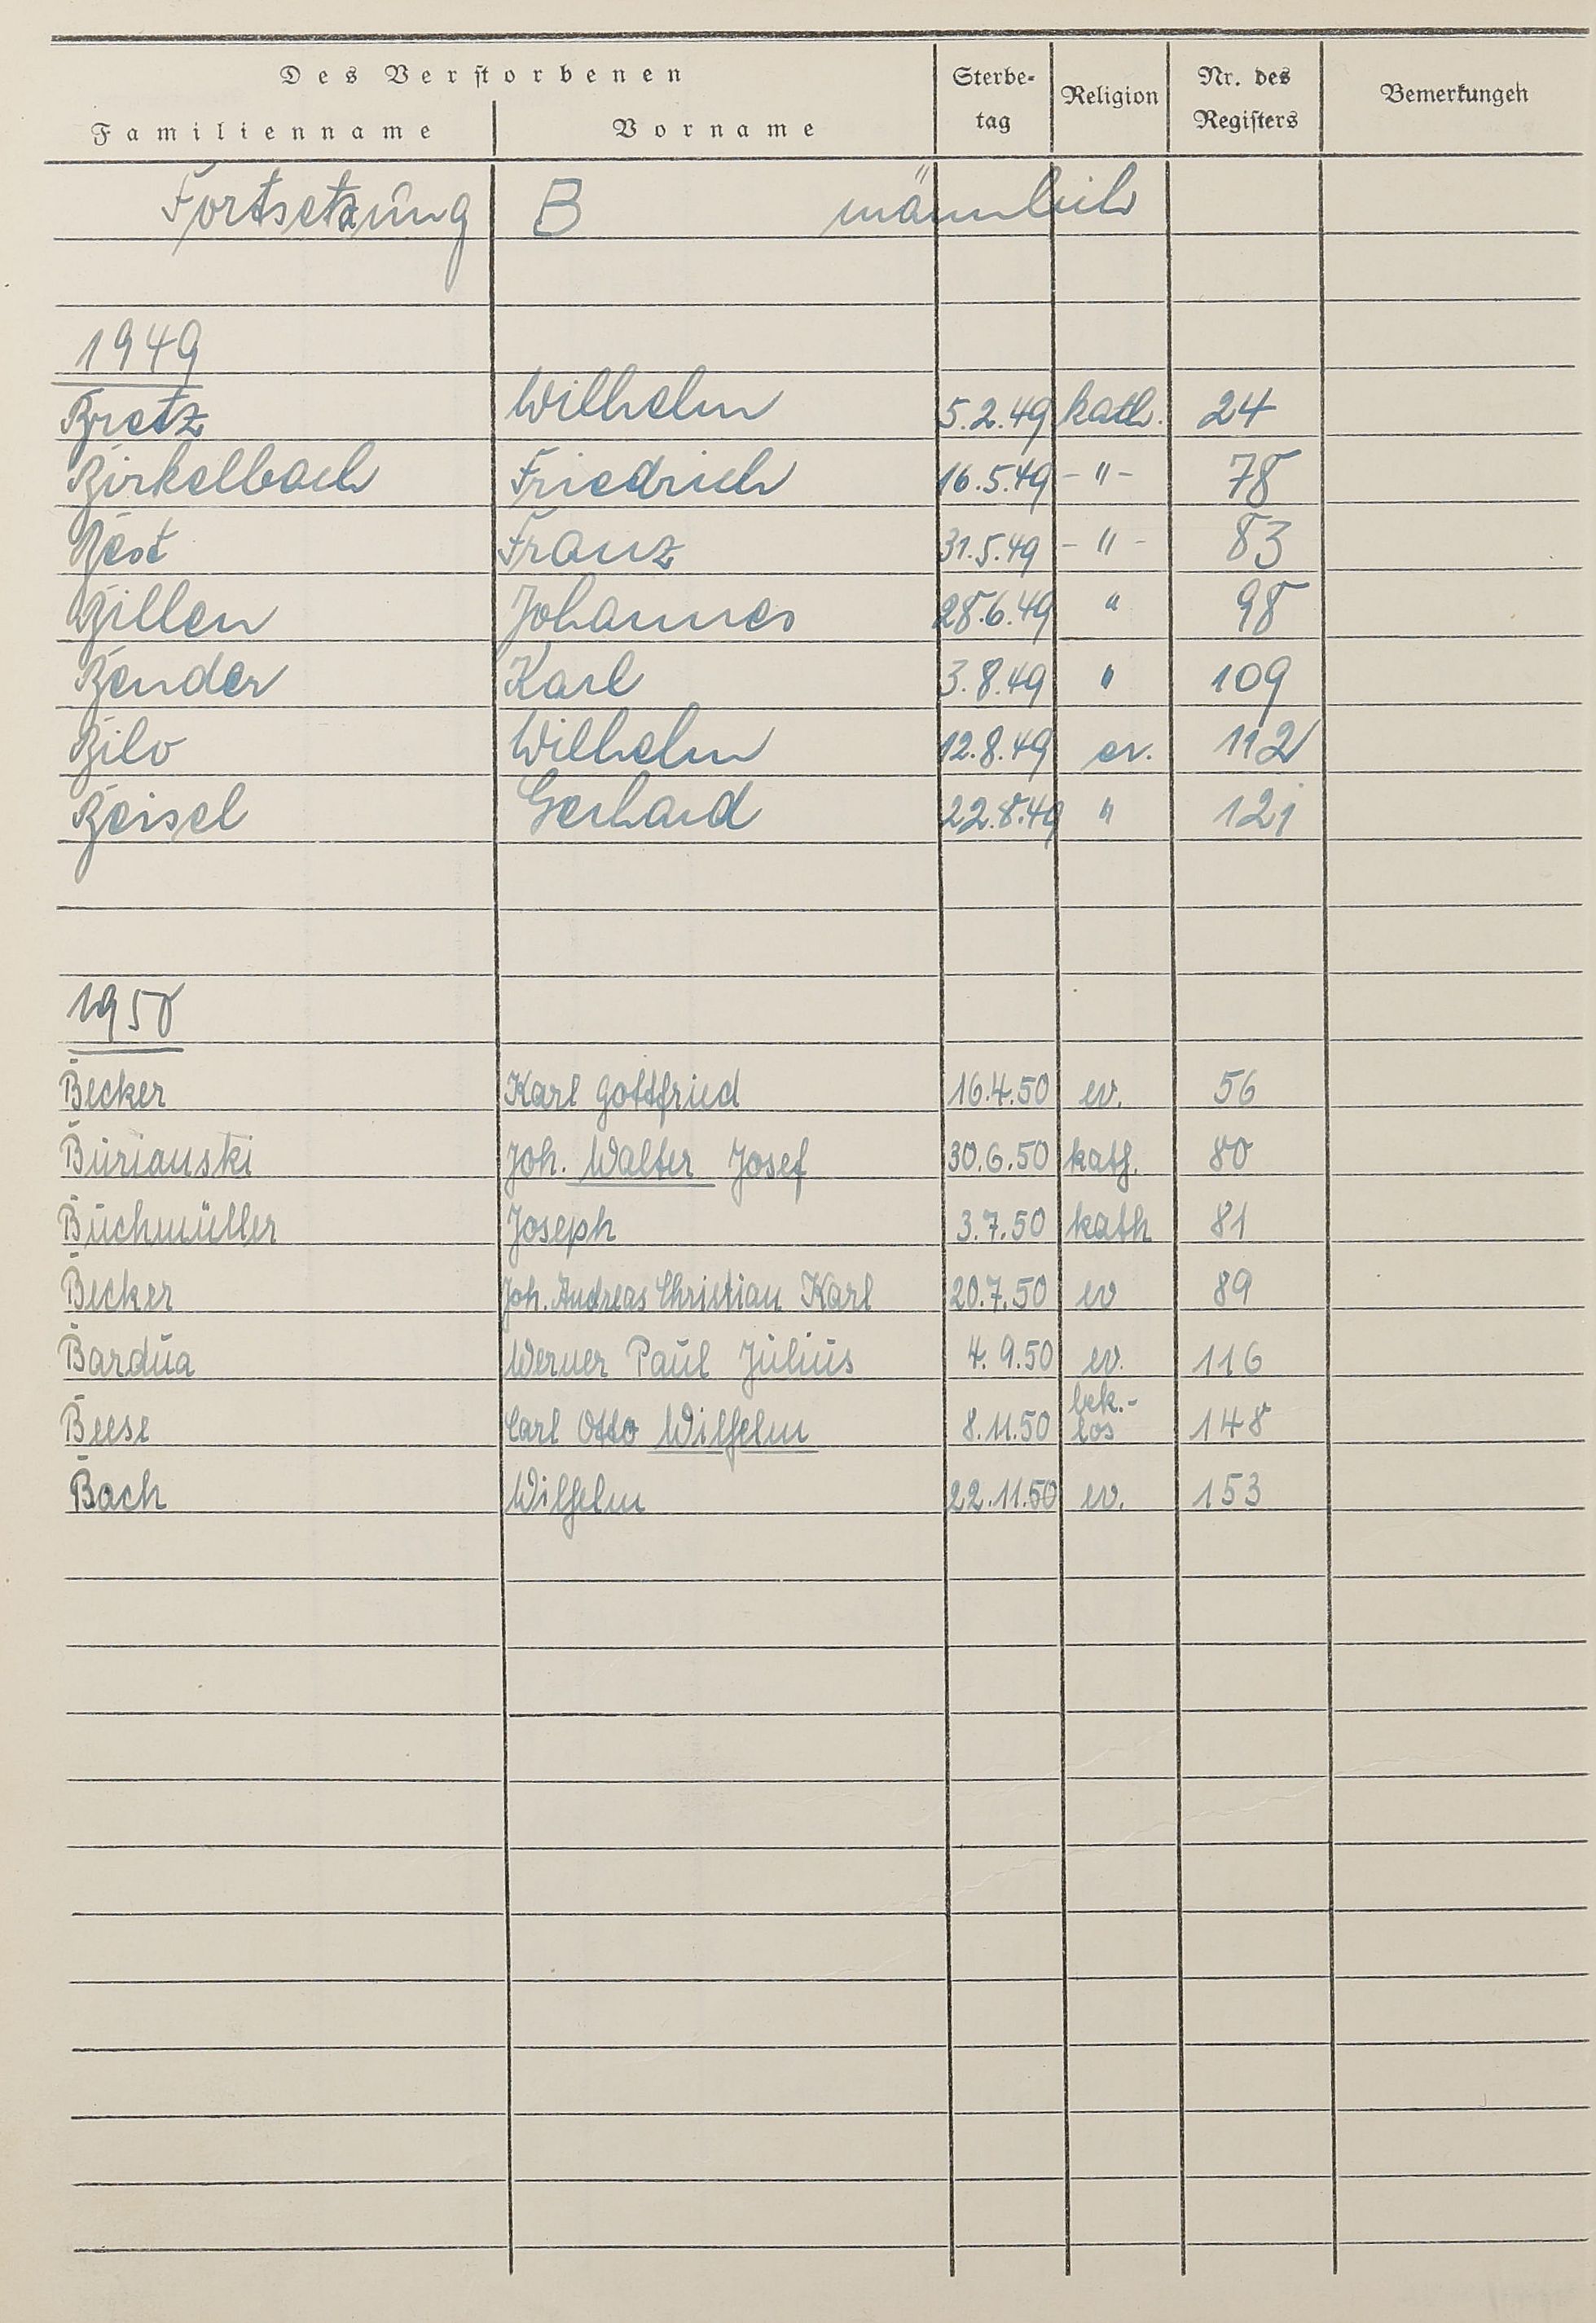 Des Verstorbenen
Familienname Vorname Sterbe-tag Religion Nr. des Registers Bemerkungen
Fortsetzung B männlich
1949
Bretz Wilhelm 5.2.49 kath. 24
Birkelbach Friedrich 16.5.49 -"- 78
Best Franz 31.5.49 -"- 83
Billen Johannes 28.6.49 " 98
Bender Karl 3.8.49 " 109
Bilo Wilhelm 12.8.49 ev. 112
Beisel Gerhard 22.8.49 " 121
1950
Becker Karl Gottfried 16.4.50 ev. 56
Burianski Joh. Walter Josef 30.6.50 kath. 80
Buchmüller Joseph 3.7.50 kath 81
Becker Joh. Andreas Christian Karl 20.7.50 ev 89
Bardua Werner Paul Julius 4.9.50 ev. 116
Beese Carl Otto Wilhelm 8.11.50 bek.-los 148
Bach Wilhelm 22.11.50 ev. 153